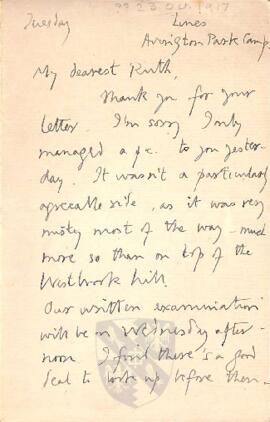 ?? 23 Oct. 1917
Tuesday Lines
Avington Park Camp.
My dearest Ruth,
Thank you for your
letter. I'm sorry I only
managed a p.c. to you yester-
day. It wasn't a particularly
agreeable ride, as it was very
misty most of the way – much
more so than on top of the
Westbrook hill.
Our written examination
will be on Wednesday after-
noon I find there's a good
deal to look up before then –